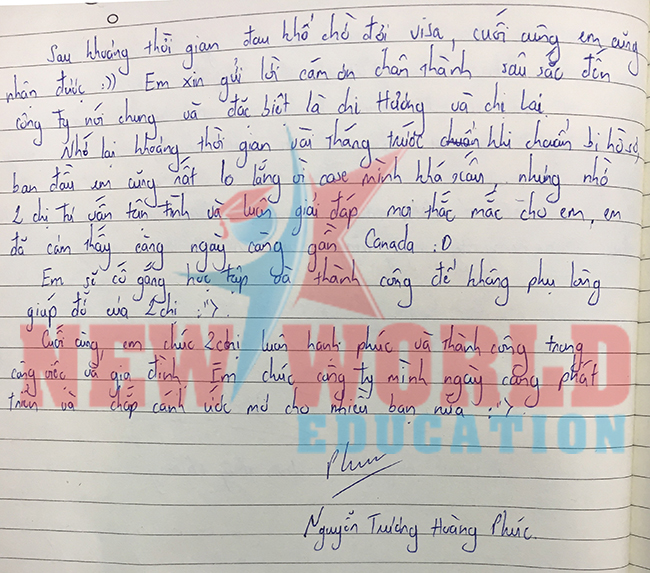 Sau khoảng thời gian đau khổ chờ đợi visa, cuối cùng em cũng
nhận được :)) Em xin gửi lời cám ơn chân thành sâu sắc đến
công ty nói chung và đặc biệt là chị Hương và chị Lai
Nhớ lại khoảng thời gian vài tháng trước chuẩn khi chuẩn bị hồ sơ,
ban đầu em cũng rất lo lắng vì case mình khá, nhưng nhờ
2 chị tư vấn tận tình và luôn giải đáp mọi thắc mắc cho em, em
đã cảm thấy càng ngày càng gần Canada :D
Em sẽ cố gắng học tập và thành công để không phụ lòng
giúp đỡ của 2 chị :">.
Cuối cùng, em chúc 2 chị luôn hạnh phúc và thành công trong
công việc và gia đình. Em chúc công ty mình ngày càng phát
triển và chắp cánh ước mơ cho nhiều bạn nữa :">.
NEW WORLD
EDUCATION
Phuc
Nguyễn Trương Hoàng Phúc.